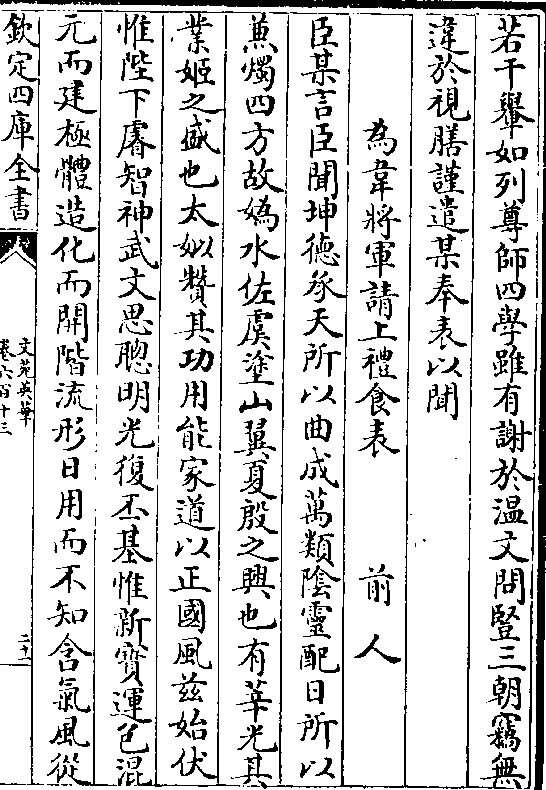 若干轝如列尊師四學雖有謝於溫文問豎三朝竊無
違於視膳謹遣某奉表以聞
為韋將軍請上禮食表　前人
臣某言臣聞坤德承天所以曲成萬類陰靈配日所以
兼燭四方故媯水佐虞塗山翼夏殷之興也有莘光其
業姬之盛也太姒贊其功用能家道以正國風茲始伏
惟陛下睿智神武文思聰明光復丕基惟新寶運包混
元而建極體造化而開階流形日用而不知含氣風從
欽定四庫全書
文苑英華
卷六百十三
二十一